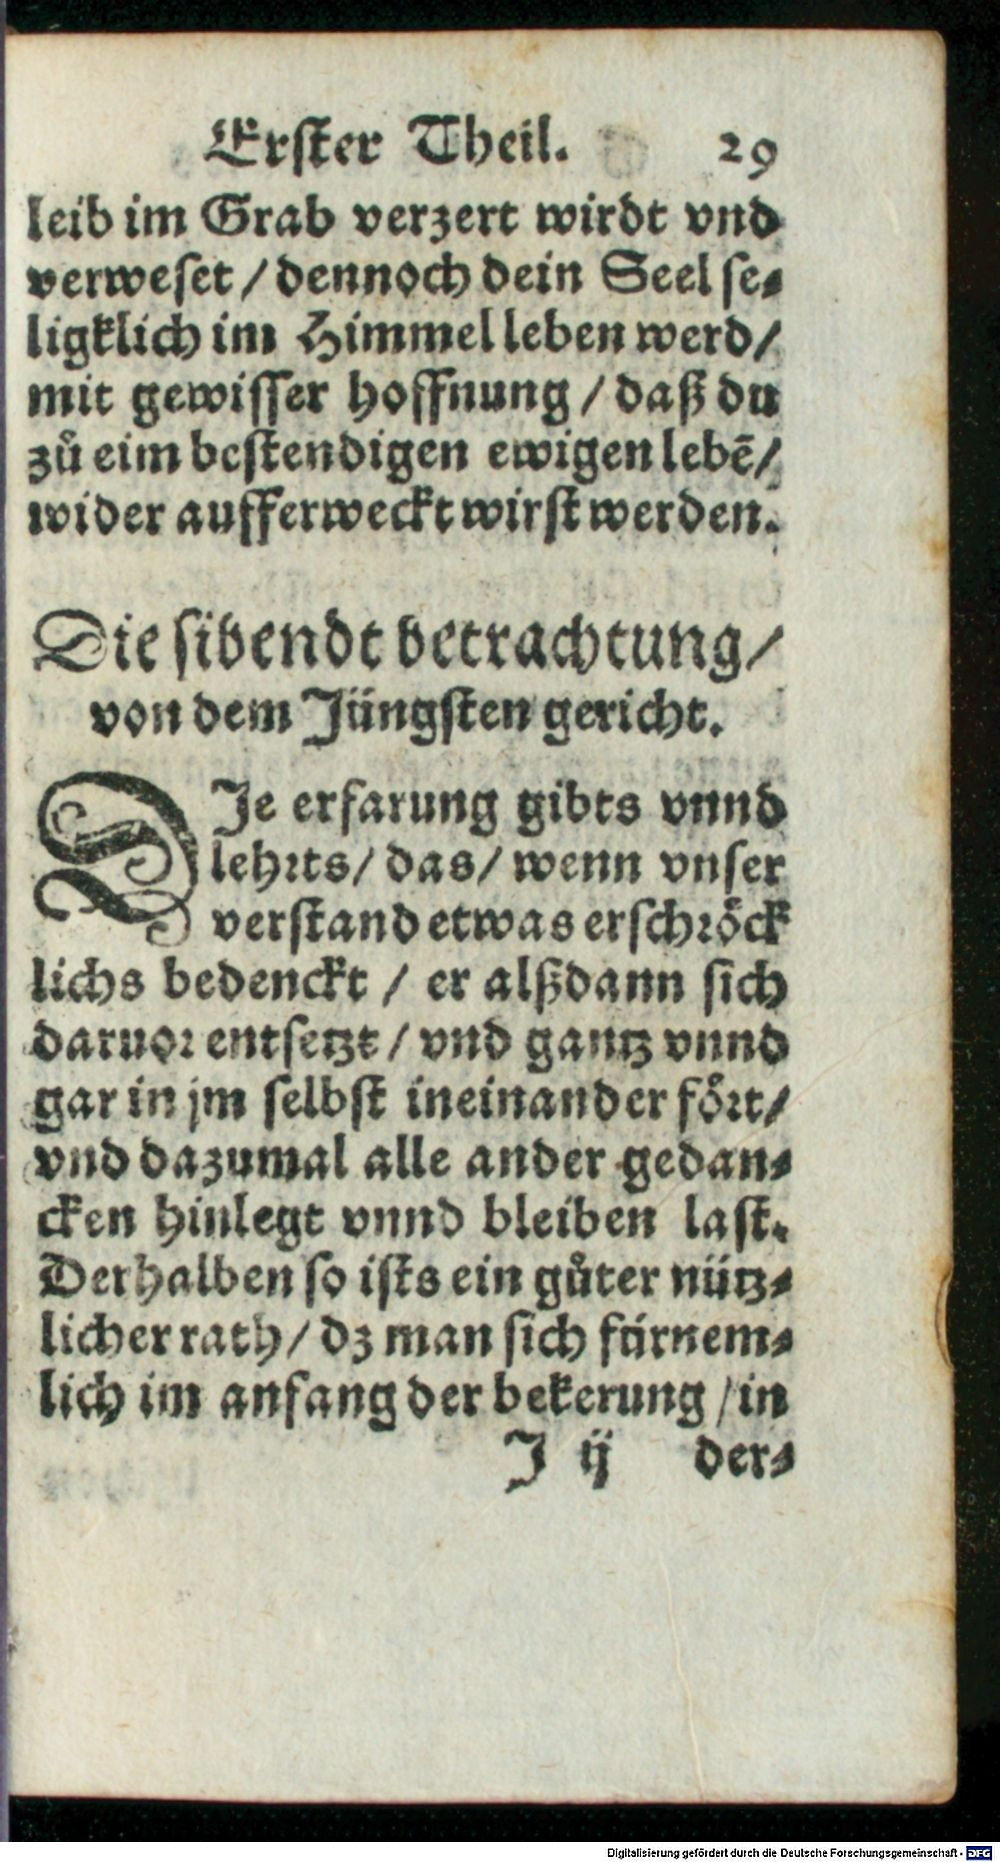 Erster Theil. 29
leib im Grab verzert wirdt vnd
verweset / dennoch dein Seel se⸗
ligklich im Himmel leben werd /
mit gewisser hoffnung / daß du
zů eim bestendigen ewigen lebē /
wider aufferweckt wirst werden.
Die sibendt betrachtung /
von dem Jüngsten gericht.
DJe erfarung gibts vnnd
lehrts / das / wenn vnser
verstand etwas erschröck
lichs bedenckt / er alßdann sich
daruor entsetzt / vnd gantz vnnd
gar in jm selbst ineinander fört /
vnd dazumal alle ander gedan⸗
cken hinlegt vnnd bleiben last.
Derhalben so ists ein gůter nütz⸗
licher rath / dz man sich fürnem⸗
lich im anfang der bekerung / in
J ij der⸗
Digitalisierung gefördert durch die Deutsche Forschungsgemeinschaft - DFG